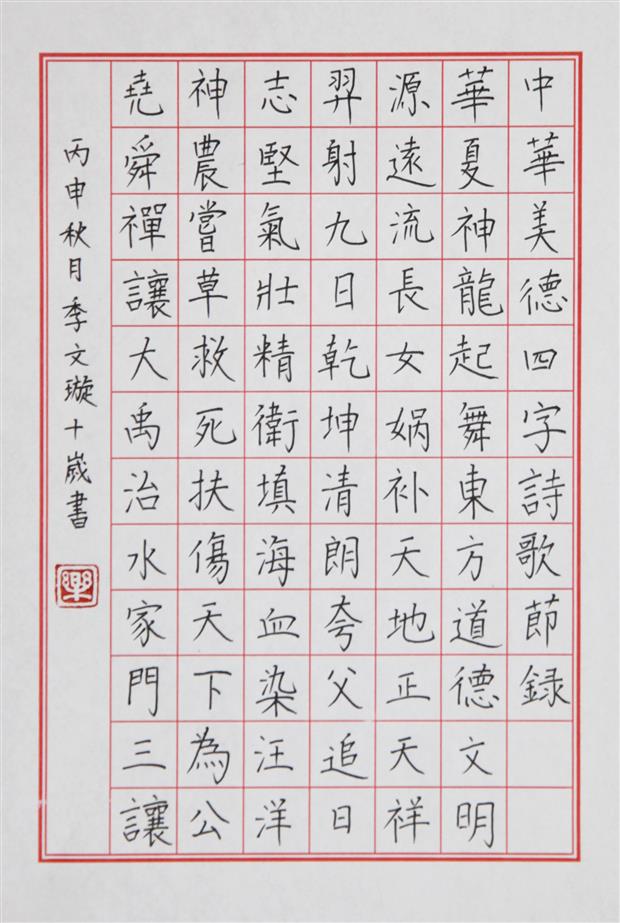 中華美德四字詩歌節録
華夏神龍起舞東方道德文明
源遠流長女娲补天地正天祥
羿射九日乾坤清朗夸父追日
志堅氣壯精衛填海血染汪洋
神農嘗草救死扶傷天下為公
堯舜禪讓大禹治水家門三讓
丙申秋月季文璇十歲書
樂